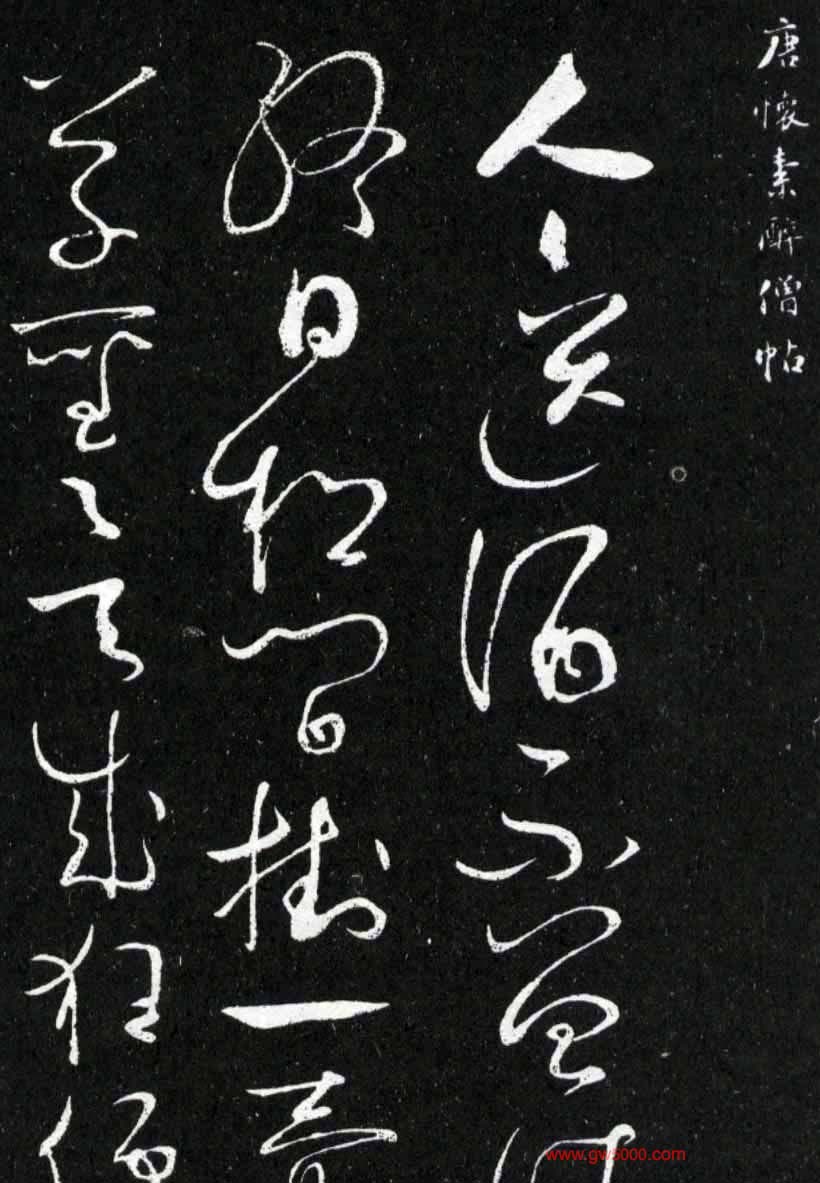 唐懷素醉僧帖
人〻送酒不曾
終日松間掛一壺
草聖欲成狂便
www.gw5000.com